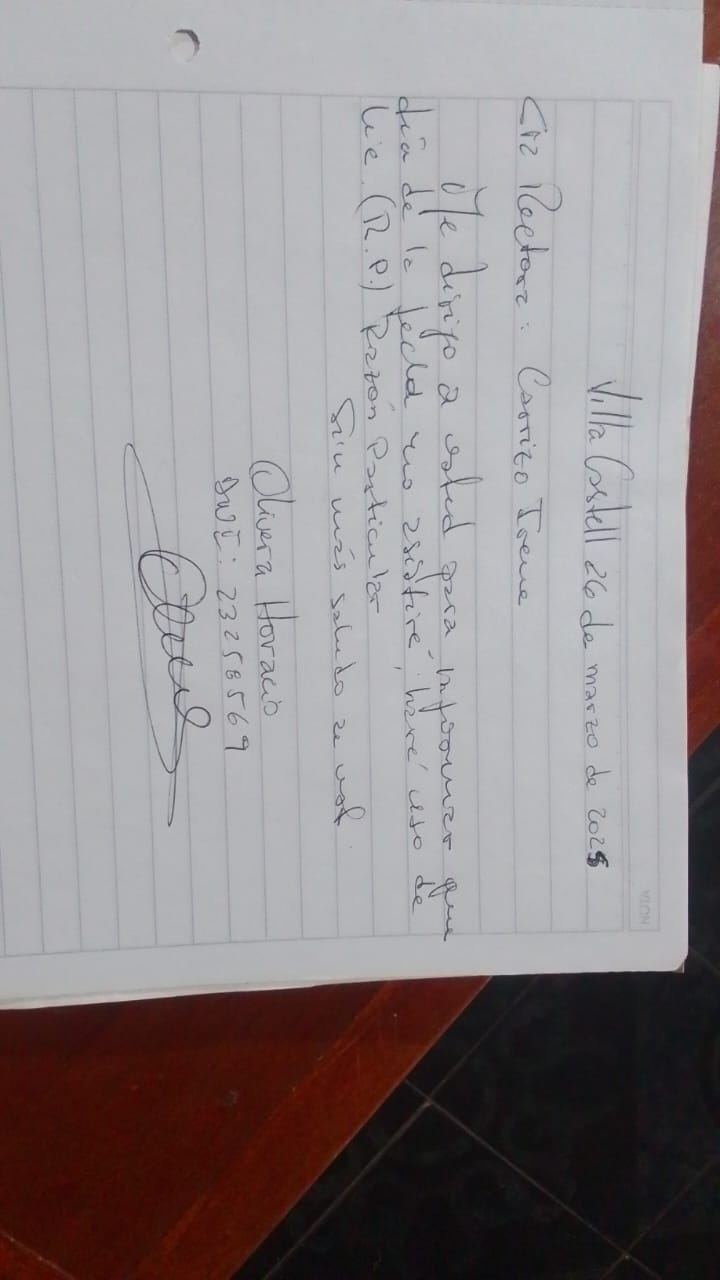 NOTA
Villa Castell 26 de marzo de 2025
Sra Rectora: Carrizo Irene
Me dirijo a usted para informar que
día de la fecha no asistiré, haré uso de
lic. (R.P.) Razón Particular
Sin más saludo a ud.
Olivera Horacio
DNI: 23258569